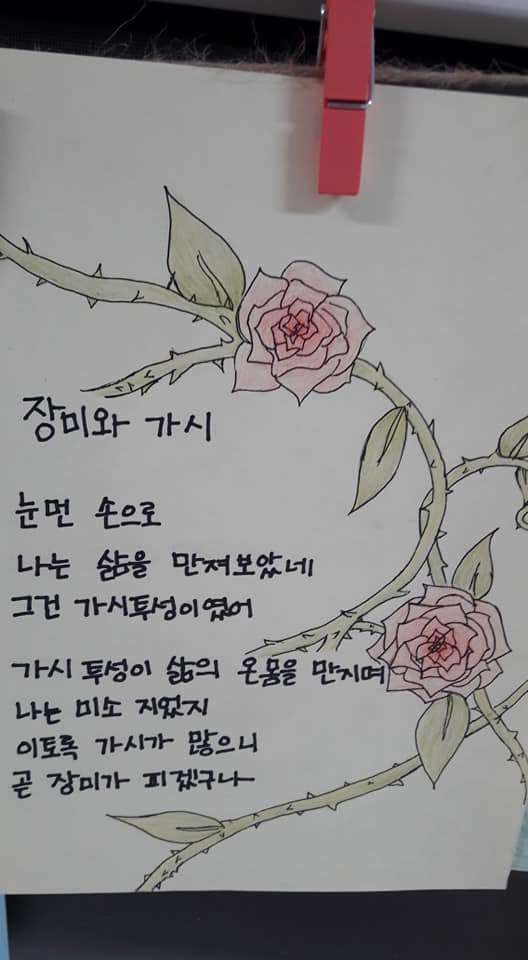 장미와 가시
눈먼 손으로
나는 삶을 만져보았네
그건 가시투성이였어
가시 투성이 삶의 온몸을 만지며
나는 미소 지었지
이토록 가시가 많으니
곧 장미가 피겠구나